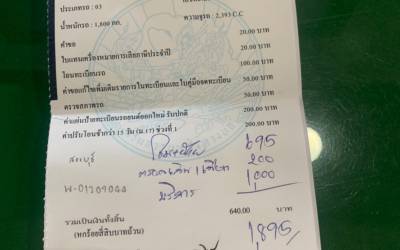 ประเภทรถ : 03
น้ำหนักรถ : 1,600 กก. ความจุรถ : 2,393 C.C
ค่าขอ 20.00 บาท
ใบแทนเครื่องหมายการเสียภาษีประจำปี 20.00 บาท
โอนทะเบียนรถ 100.00 บาท
ค่าขอแก้ไขเพิ่มเติมรายการในทะเบียนและใบคู่มือจดทะเบียน 50.00 บาท
ตรวจสภาพรถ 50.00 บาท
ค่าแผ่นป้ายทะเบียนรถยนต์ออกใหม่ รับปกติ 200.00 บาท
ค่าปรับโอนช้ากว่า 15 วัน (ม.17) ช่วงที่ 1 200.00 บาท
สระบุรี 695
200
บริการ 1,000
รวมเป็นเงินทั้งสิ้น 640.00 บาท
(หกร้อยสี่สิบบาทถ้วน) 1,895